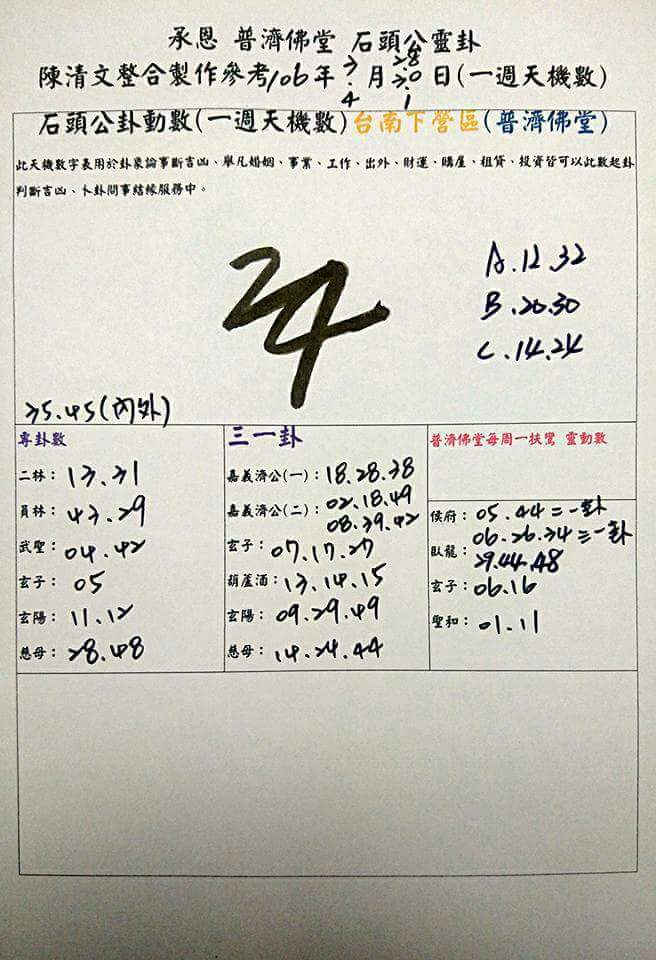 承恩 普濟佛堂 石頭公靈卦
陳清文整合製作參考106年 3.4 月 28.30.1 日(一週天機數)
石頭公卦動數(一週天機數)台南下營區(普濟佛堂)
此天機數字表用於卦象論事斷吉凶、舉凡婚姻、事業、工作、出外、財運、購屋、租貸、投資皆可以此數起卦
判斷吉凶、卜卦問事結緣服務中。
24
A.12.32
B.20.30
C.14.24
35.45(內外)
專卦數
二林：13.31
員林：43.29
武聖：04.42
玄子：05
玄陽：11.12
慈母：28.48
三一卦
嘉義濟公(一)：18.28.38
嘉義濟公(二)：02.18.49
08.39.42
玄子：07.17.27
葫蘆酒：13.14.15
玄陽：09.29.49
慈母：14.24.44
普濟佛堂每周一扶鸞 靈動數
侯府：05.44=一卦
06.26.34三一卦
臥龍：29.44.48
玄子：06.16
聖和：01.11